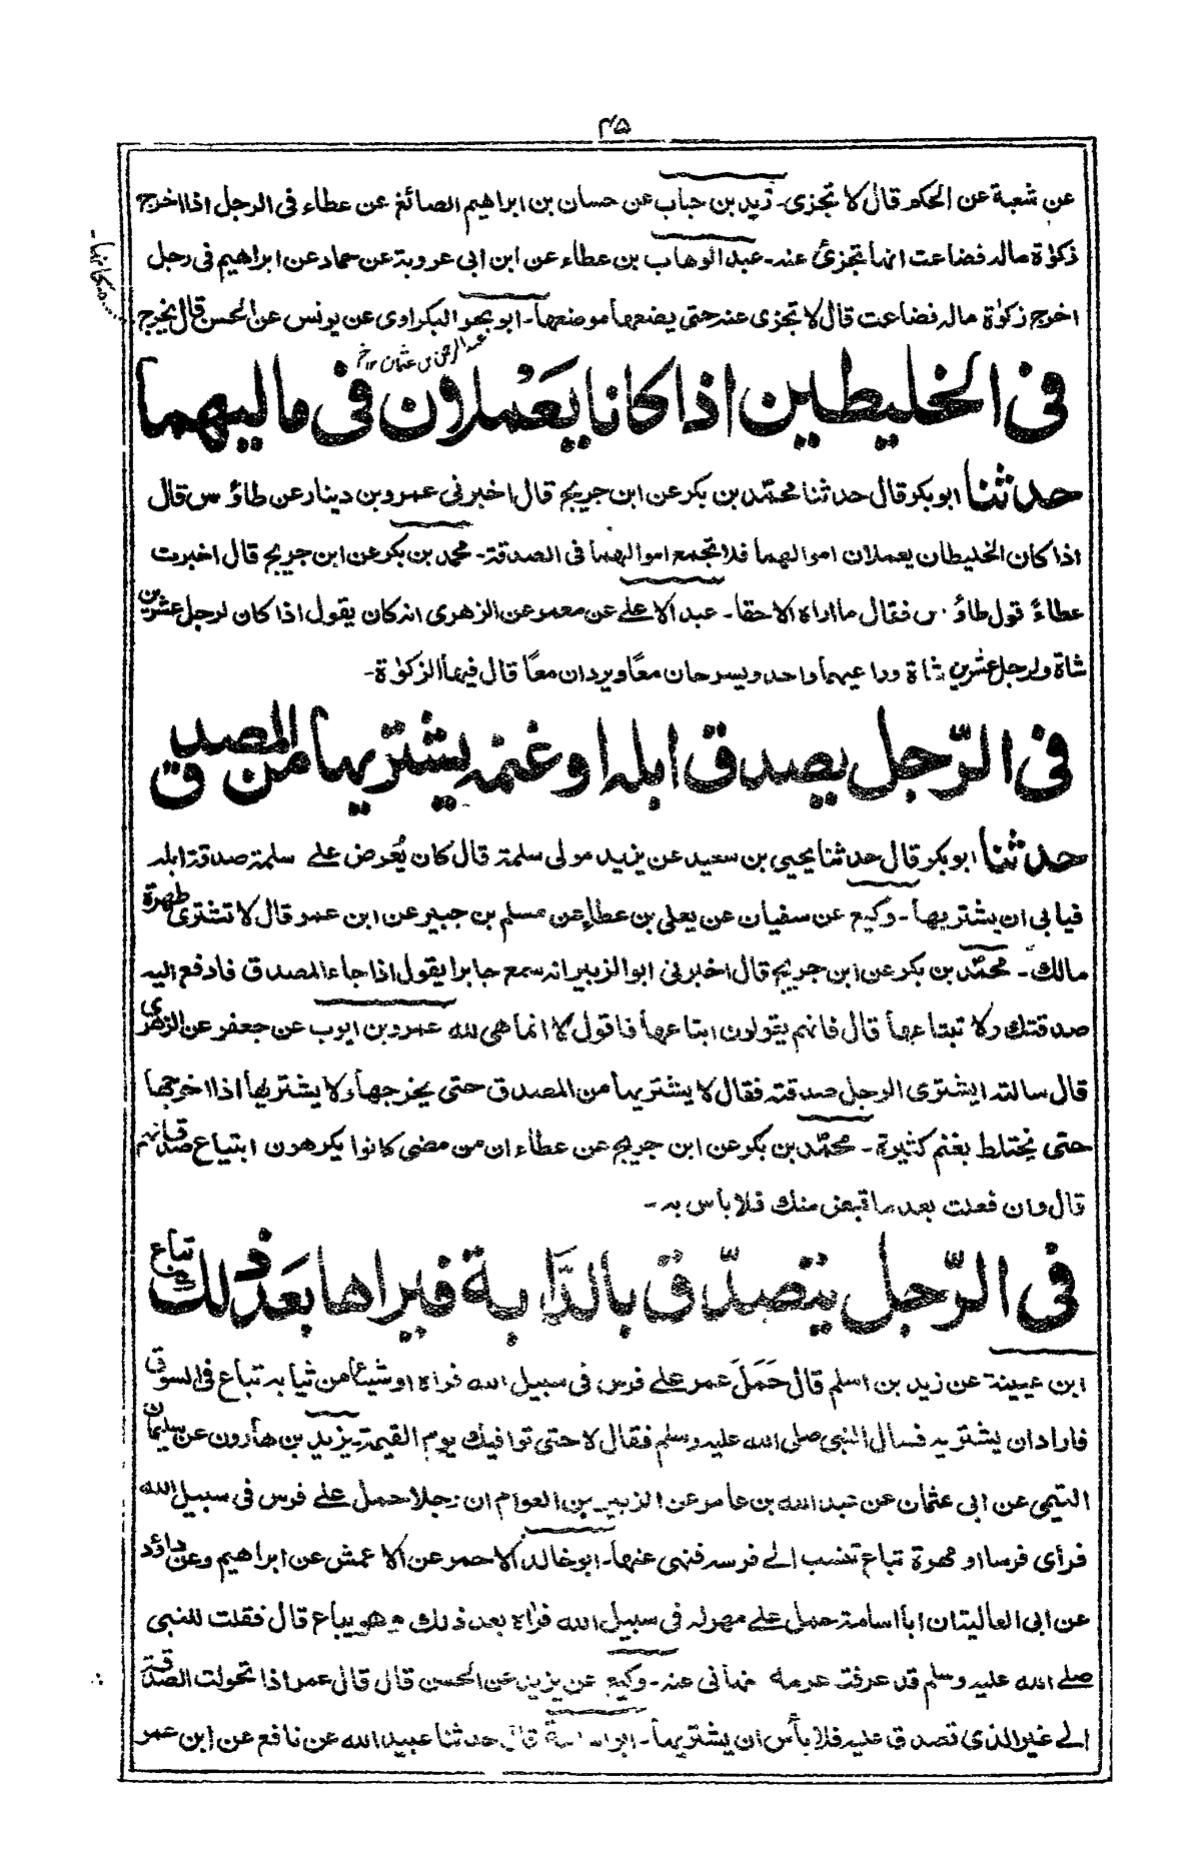 ٤٥
عن شعبة عن الحكم قال لا تجزى۔ زيد بن حباب عن حسان بن ابراهيم الصائغ عن عطاء فى الرجل اذا اخرج
زكوٰة ماله فضاعت انها تجزئ عنه۔ عبد الوهاب بن عطاء عن ابن ابى عروبة عن حماد عن ابراهيم فى رجل
اخرج زكوٰة ماله فضاعت قال لا تجزى عنه حتى يضعها موضعها۔ ابو بحر البكراوى عن يونس عن الحسن قال يخرج
مكانها۔
عبد الرحمن بن عثمان ١٢ خ
فى الخليطين اذا كانا يَعْملاون فى ماليهما
حدثنا ابو بكر قال حدثنا محمّد بن بكر عن ابن جريج قال اخبرنى عمرو بن دينار عن طاؤس قال
اذا كان الخليطان يعملان اموالهما فلا تجمع اموالهما فى الصدقة۔ محمد بن بكر عن ابن جريج قال اخبرت
عطاءً قول طاؤس فقال ما اراه الا حقا۔ عبد الاعلے عن معمر عن الزهرى انه كان يقول اذا كان لرجل عشرين
شاة ولرجل عشرين شاة وراعيهما واحد ويسرحان معًا ويردان معًا قال فيها الزكوٰة۔
فى الرّجل يصدق ابله او غنمه يشتريها من المصدق
حدثنا ابو بكر قال حدثنا يحيى بن سعيد عن يزيد مولى سلمة قال كان يُعرض علے سلمة صدقة ابله
فيابى ان يشتريها۔ وكيع عن سفيان عن يعلى بن عطاء عن مسلم بن جبير عن ابن عمر قال لا تشترى طهرة
مالك۔ محمّد بن بكر عن ابن جريج قال اخبرنى ابو الزبير انه سمع جابرا يقول اذا جاء المصدق فادفع اليه
صدقتك ولا تبتاعها قال فانهم يقولون ابتاعها فاقول لا انما هى لله عمرو بن ايوب عن جعفر عن الزهرى
قال سالته ايشترى الرجل صدقته فقال لا يشتريها من المصدق حتى يخرجها ولا يشتريها اذا اخرجها
حتى يختلط بغنم كثيرة۔ محمّد بن بكر عن ابن جريج عن عطاء ان من مضى كانوا يكرهون ابتياع صدقاتهم
قال وان فعلت بعد ما قبض منك فلا باس به۔
فى الرّجل يتصدّق بالدَّابة فيراها بعَد ذلك تباع
ابن عيينة عن زيد بن اسلم قال حَمَلَ عمر علے فرس فى سبيل الله فراه او شيئا من ثيابه تباع فى السوق
فاراد ان يشتريه فسال النبى صلى الله عليه وسلم فقال لا حتى توافيك يوم القيمة۔ يزيد بن هارون عن سليمان
التيمى عن ابى عثمان عن عبد الله بن عامر عن الزبير بن العوام ان رجلا حمل علے فرس فى سبيل الله
فرأى فرسا او مهرة تباع تنسب الے فرسه فنهى عنها۔ ابو خالد الاحمر عن الاعمش عن ابراهيم وعن داؤد
عن ابى العالية ان ابا اسامة حمل علے مهر له فى سبيل الله فراه بعد ذلك وهو يباع قال فقلت للنبى
صلے الله عليه وسلم قد عرفت عرمه فنهانى عنه۔ وكيع عن يزيد عن الحسن قال قال عمر اذا تحولت الصدقة
الے غير الذى تصدق عليه فلا بأس ان يشتريها۔ ابو اسامة قال حدثنا عبيد الله عن نافع عن ابن عمر